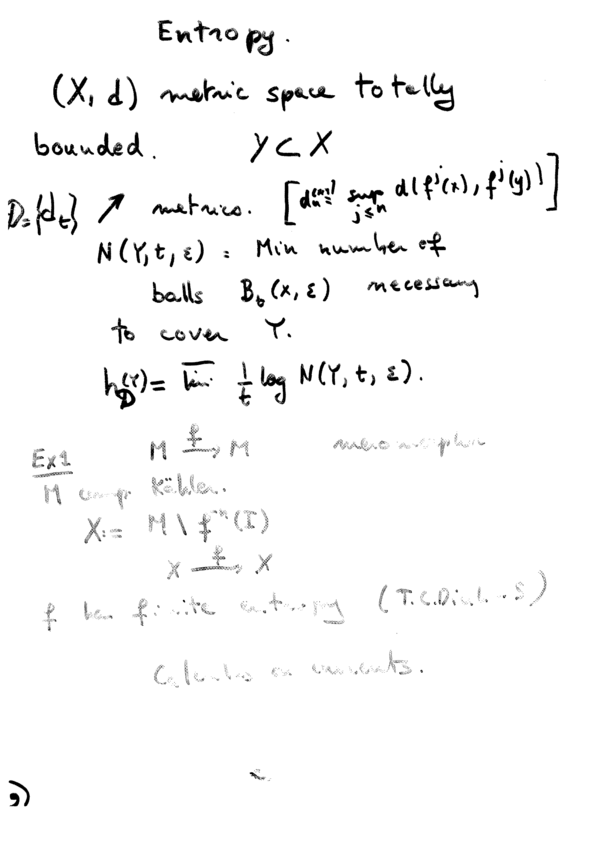 Entropy.
(X, d) metric space totally
bounded. Y ⊂ X
D = {d_t} ↗ metrics. [ sup_{j≤n} d(f^j(x), f^j(y)) ]
N(Y, t, ε) = Min number of
balls B_t(x, ε) necessary
to cover Y.
h_D(Y) = \overline{lim} 1/t log N(Y, t, ε).
Ex1 M →^f M
M comp. Kähler.
X := M \ (I)
X →^f X
f has finite entropy (T.C.Dinh. S)
Calculus on currents.